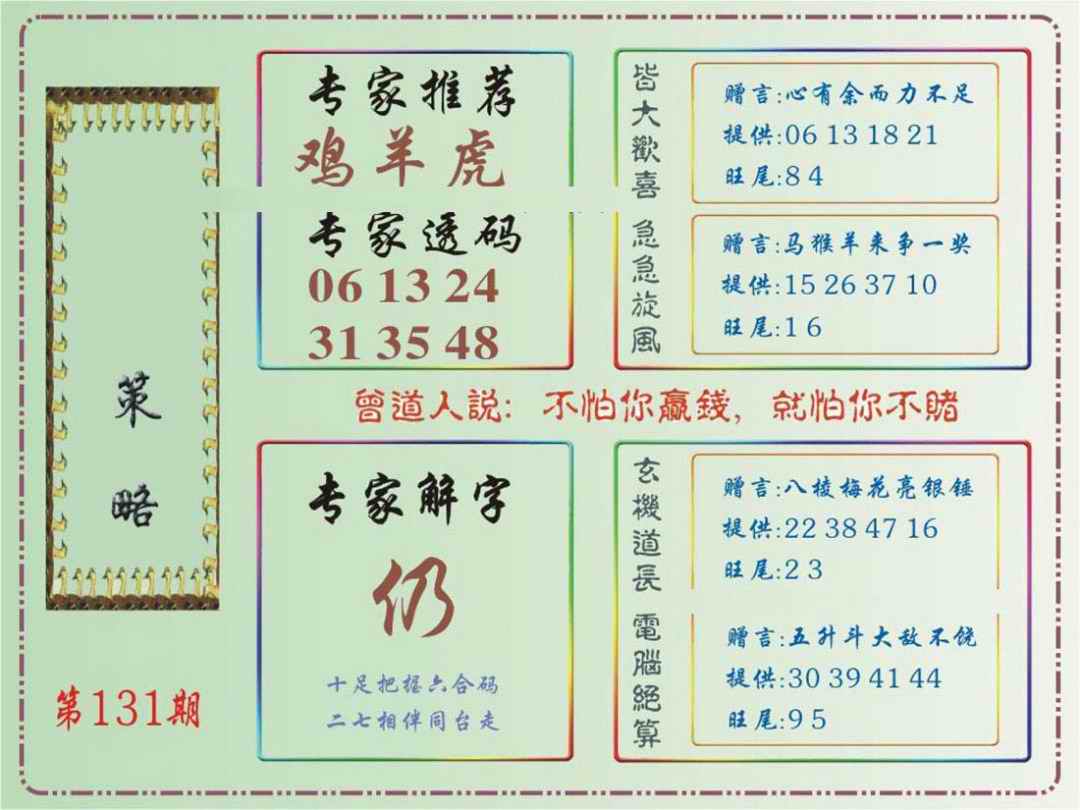 策略
第131期
专家推荐
鸡羊虎
专家透码
06 13 24
31 35 48
皆大歡喜
赠言:心有余而力不足
提供:06 13 18 21
旺尾:8 4
急急旋風
赠言:马猴羊来争一奖
提供:15 26 37 10
旺尾:1 6
曾道人説: 不怕你贏錢, 就怕你不賭
专家解字
仍
十足把握六合码
二七相伴同台走
玄機道長
赠言:八棱梅花亮银锤
提供:22 38 47 16
旺尾:2 3
電腦絕算
赠言:五升斗大敌不饶
提供:30 39 41 44
旺尾:9 5